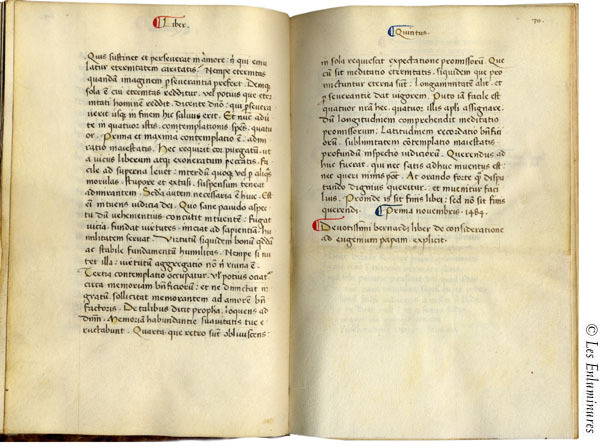 Liber.
Quis sustinet et perseverat in amore: nisi qui emu
latur eternitatem caritatis? Nempe eternitas
quandam imaginem perseverantia prefert. Denique
sola est cui eternitas redditur. vel potius que eter
nitati hominem reddit. dicente domino: qui persevera
verit usque in finem hic salvus erit. Et nunc adv
te in quatuor istis contemplationis species. quatu
or. Prima et maxima contemplatio est. admi
ratio maiestatis. Hec requirit cor purgatum. ut
a viciis liberum atque exoneratum peccatis. faci
le ad superna levet: interdum quoque vel per aliquas
morulas. stupore et extasi. suspensum teneat
admirantem. Secunda autem necessaria est huic. Est
enim intuens iudicia dei. Quo sane pavido aspec
tu dum vehementius concutit intuentem: fugat
vicia. fundat virtutes. iniciat ad sapientiam. hu
militatem servat. Virtutum siquidem bonum quoddam
ac stabile fundamentum humilitas. Nempe si nu
tet illa: virtutum aggregatio non nisi ruina est.
Tercia contemplatio occupatur. vel potius ociatur
circa memoriam beneficiorum: et ne dimictat in
gratum sollicitat memorantem ad amorem bene
factoris. De talibus dicit propheta. loquens ad
dominum. Memoriam habundantie suavitatis tue e
ructabunt. Quarta que retro sunt obliviscens:
Quintus.
70.
in sola requiescit expectatione promissorum. Que
cum sit meditatio eternitatis. siquidem que pro
mictuntur eterna sunt: longanimitatem alit. et
perseverantie dat vigorem. Puto iam facile est
quatuor nostra hec. quatuor illis apostoli assignare.
dum longitudinem comprehendit meditatio
promissorum. Latitudinem recordatio benefici
orum. sublimitatem contemplatio maiestatis
profundum inspectio iudiciorum. Querendus ad
huc fuerat. qui nec satis adhuc inventus est:
nec queri nimis potest. At orando forte quam dispu
tando dignius queritur. et invenitur faci
lius. Proinde is sit finis libri: sed non sit finis
querendi. Prima novembris. 1484.
Devotissimi bernardi liber de consideratione
ad eugenium papam. explicit.
© Les Enluminures